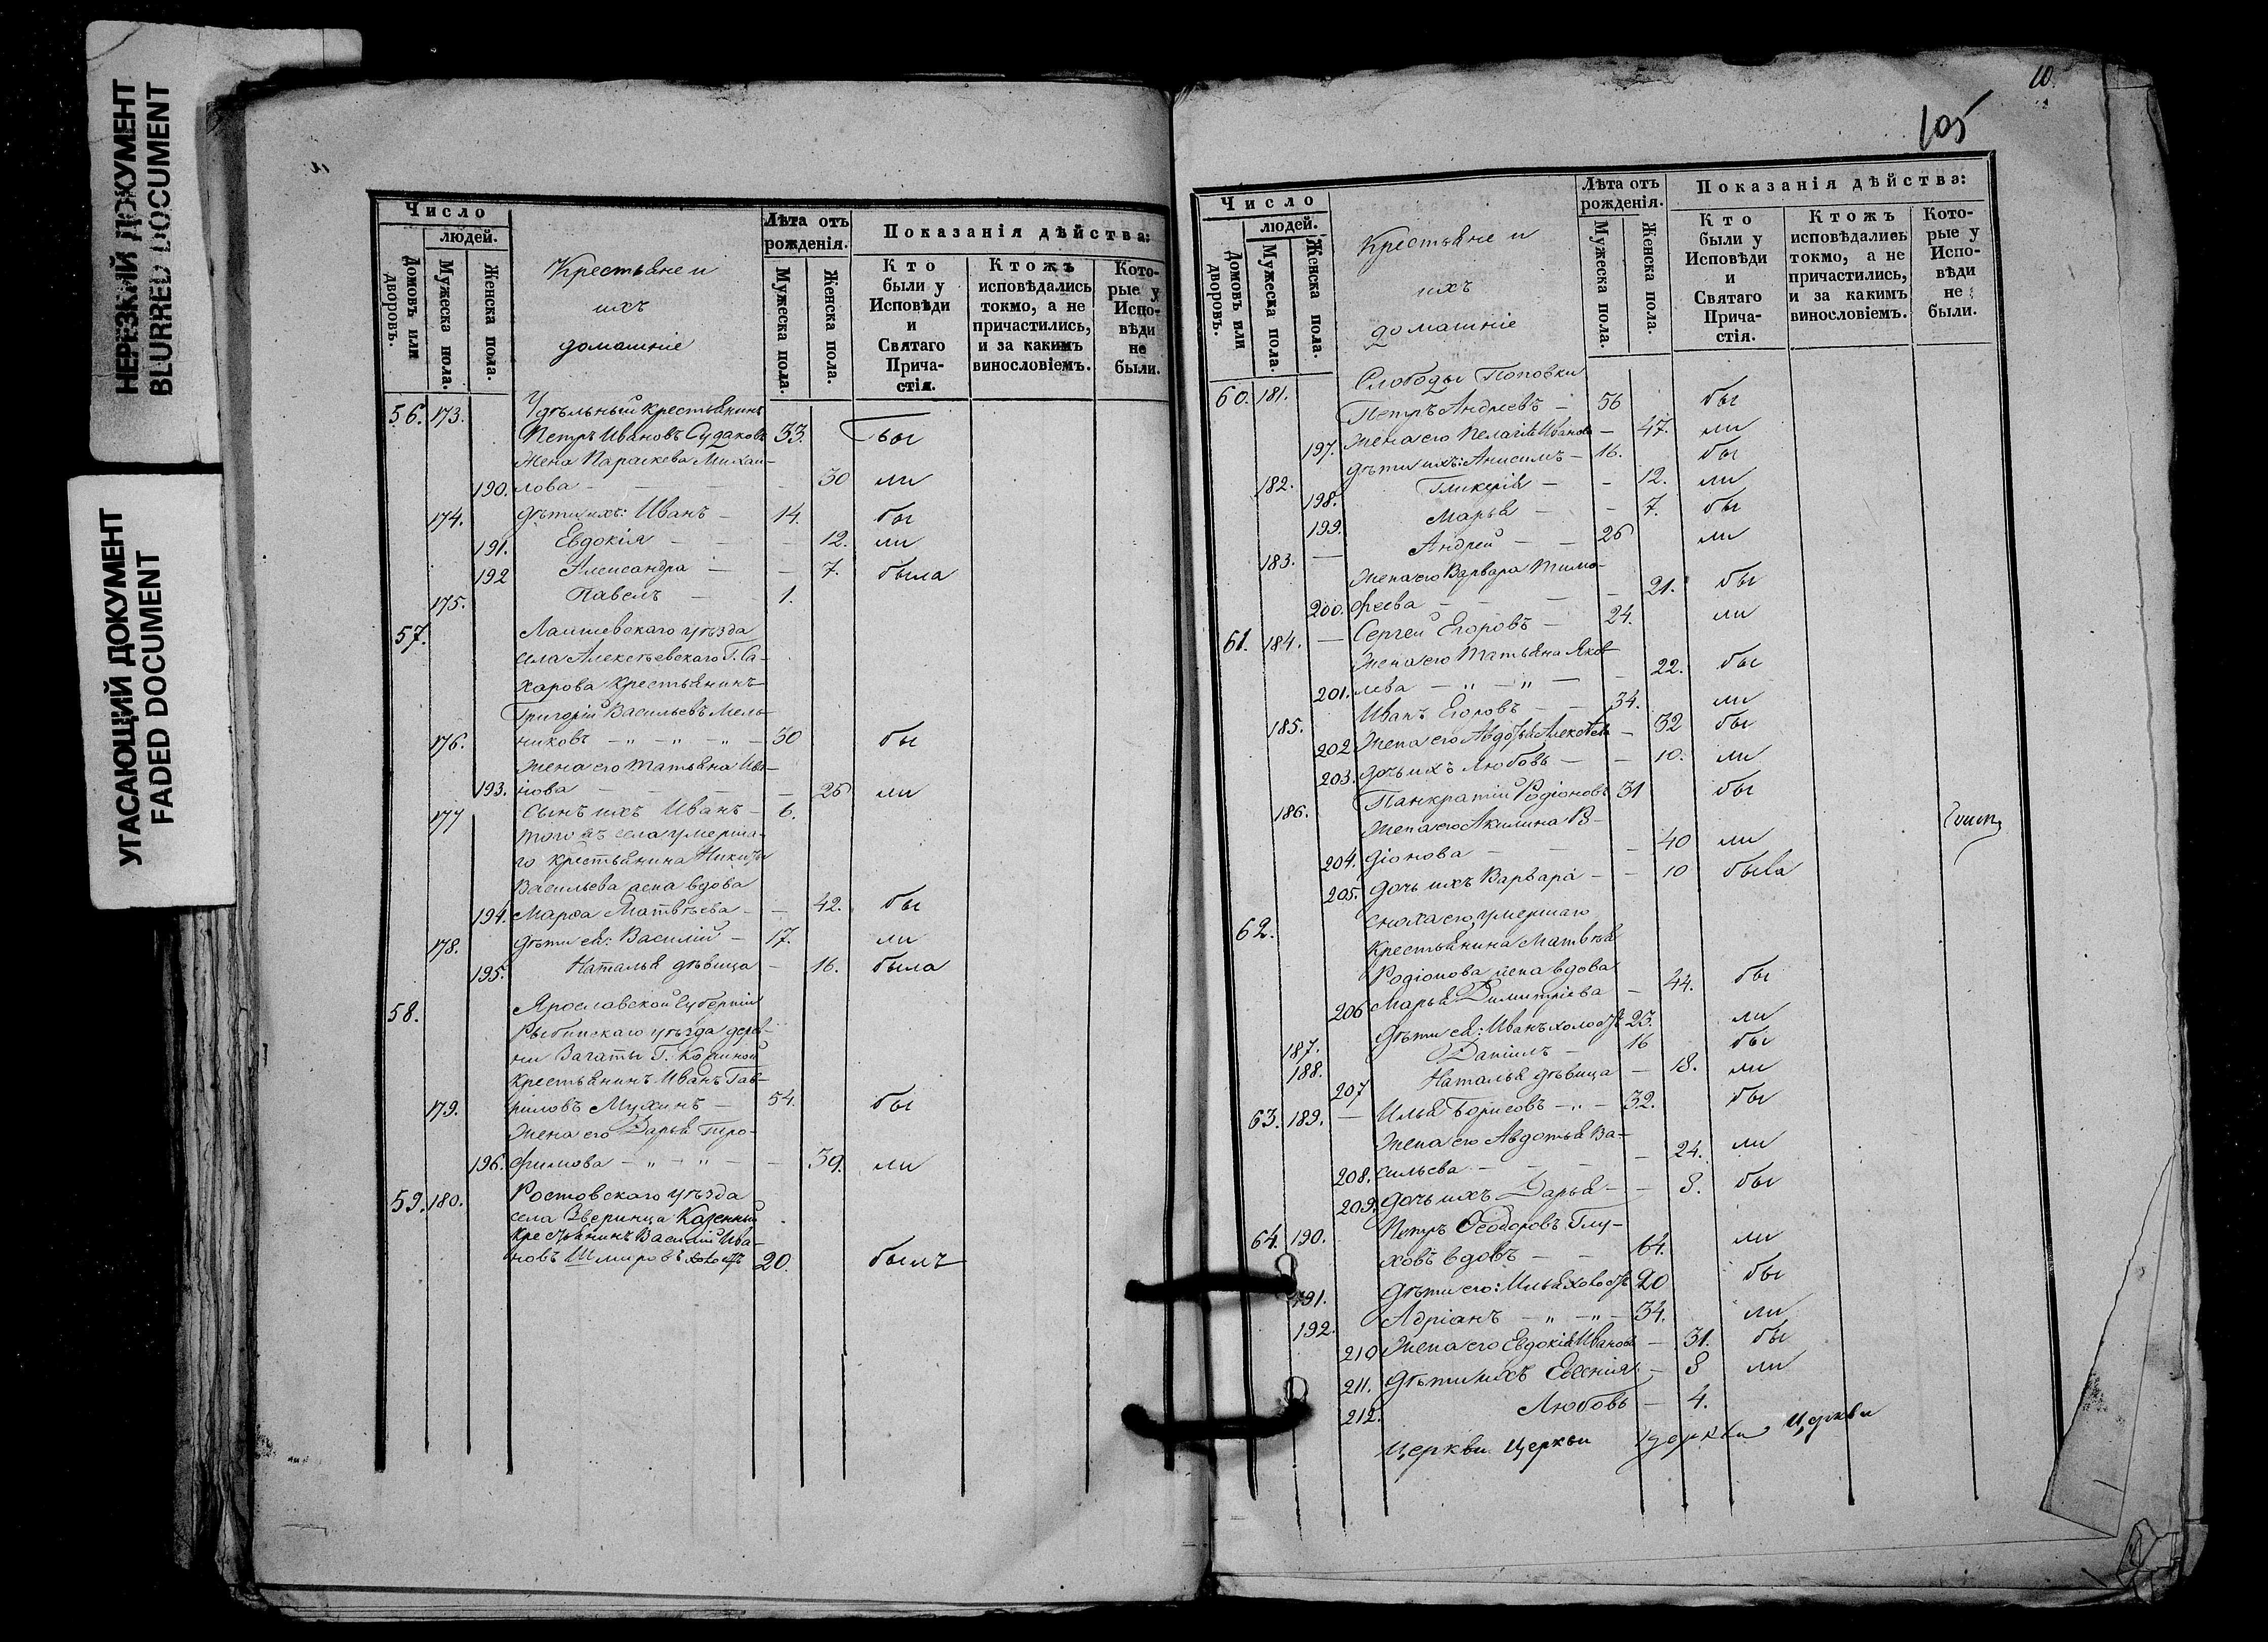 НЕРЕЗКИЙ ДОКУМЕНТ
BLURRED DOCUMENT
УГАСАЮЩИЙ ДОКУМЕНТ
FADED DOCUMENT
Число
людей.
Домовъ или дворовъ.
Мужеска пола.
Женска пола.
Крестьяне и
ихъ
домашніе
Лѣта отъ рожденія.
Мужеска пола.
Женска пола.
Показанія дѣйства:
Кто были у Исповѣди и Святаго Прича-стія.
Ктожъ исповѣдались токмо, а не причастились, и за какимъ винословіемъ.
Кото-рые у Испо-вѣди не были.
56. 173. Удѣльный крестьянинъ
Петръ Ивановъ Судаковъ 33. бы
Жена Параскева Михаи-
190. лова - - - 30 ли
174. дѣти ихъ: Иванъ - 14. бы
191. Евдокія - - - 12. ли
192 Александра - - 7. была
175. Павелъ - - 1.
57. Лаишевскаго уѣзда
села Алексѣевскаго Г. Са-
харова крестьянинъ
Григорій Васильевъ Мель-
176. никовъ - " - " - " - 30 бы
жена его Татьяна Ива-
193. нова - - - - 26 ли
177 Сынъ ихъ Иванъ - 6.
того жъ села умерша-
го крестьянина Никиты
Васильева жена вдова
194. Марѳа Матвѣева - - 42. бы
178. дѣти ея: Василій - 17. ли
195. Наталья дѣвица - 16. была
58. Ярославской губерніи
Рыбинскаго уѣзда дерев-
ни Г.
крестьянинъ Иванъ Гав-
179. риловъ Мухинъ - 54. бы
жена его Дарья Тро-
196. фимова - " - " - - 39. ли
59. 180. Ростовскаго уѣзда
села Зверинца Казенный
крестьянинъ Василій Ива-
новъ холостъ 20. былъ
10.
105
Число
людей.
Домовъ или дворовъ.
Мужеска пола.
Женска пола.
Крестьяне и
ихъ
домашніе
Лѣта отъ рожденія.
Мужеска пола.
Женска пола.
Показанія дѣйства:
Кто были у Исповѣди и Святаго Прича-стія.
Ктожъ исповѣдались токмо, а не причастились, и за какимъ винословіемъ.
Кото-рые у Испо-вѣди не были.
Слободы Поповки
60. 181. Петръ Андреевъ - 56 бы
197. жена его Пелагія Иванова - 47. ли
182. дѣти ихъ: Анисимъ - 16. бы
198. Гликерія - - 12. ли
199. Марья - - 7. бы
183. - Андрей - - 26 ли
жена его Варвара Тимо-
200. феева - - - 21. бы
61. 184. - Сергей Егоровъ - 24. ли
жена его Татьяна Яков
201. лева - " - " - - 22. бы
185. Иванъ Егоровъ - - 34. ли
202 жена его Авдотья Алексѣева - 32 бы
203. дочь ихъ Любовь - - 10. ли
186. Панкратій Родіоновъ 31 бы
жена его Акилина
204. діонова - - - 40 ли
205. дочь ихъ Варвара - - 10 была
62. сноха его, умершаго
крестьянина Матвѣя
Родіонова жена вдова
206 Марья Димитріева - 44. бы
187. дѣти ея: Иванъ холостъ 23. ли
188. Даніилъ - 16 бы
207 Наталья дѣвица - 18. ли
63. 189. - Илья Борисовъ - " - 32. бы
жена его Авдотья Ва-
208. сильева - - - - 24. ли
209. дочь ихъ Дарья - - 8. бы
64. 190. Петръ Ѳеодоровъ Глу-
ховъ вдовъ - - 64. ли
191. дѣти его: Илья холостъ 20 бы
192. Адріанъ - " - " - 34. ли
210 жена его Евдокія Иванова - 31. бы
211. дѣти ихъ Евгенія - 8 ли
212. Любовь - 4.
Церкви Церкви Церкви Церкви